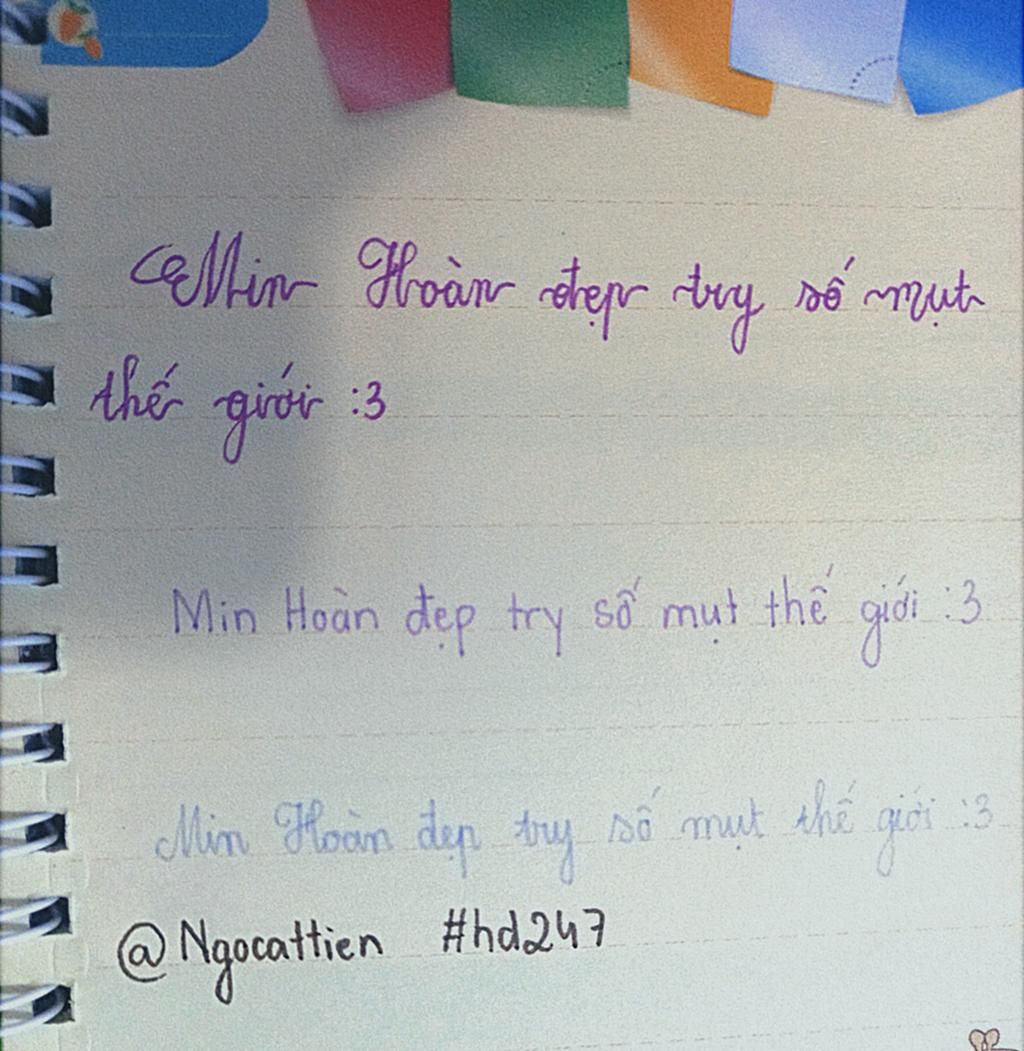 Min Hoàn đẹp try số mụt
thế giới :3
Min Hoàn đẹp try số mụt thế giới :3
Min Hoàn đẹp try số mụt thế giới :3
@Ngocattien #hd247